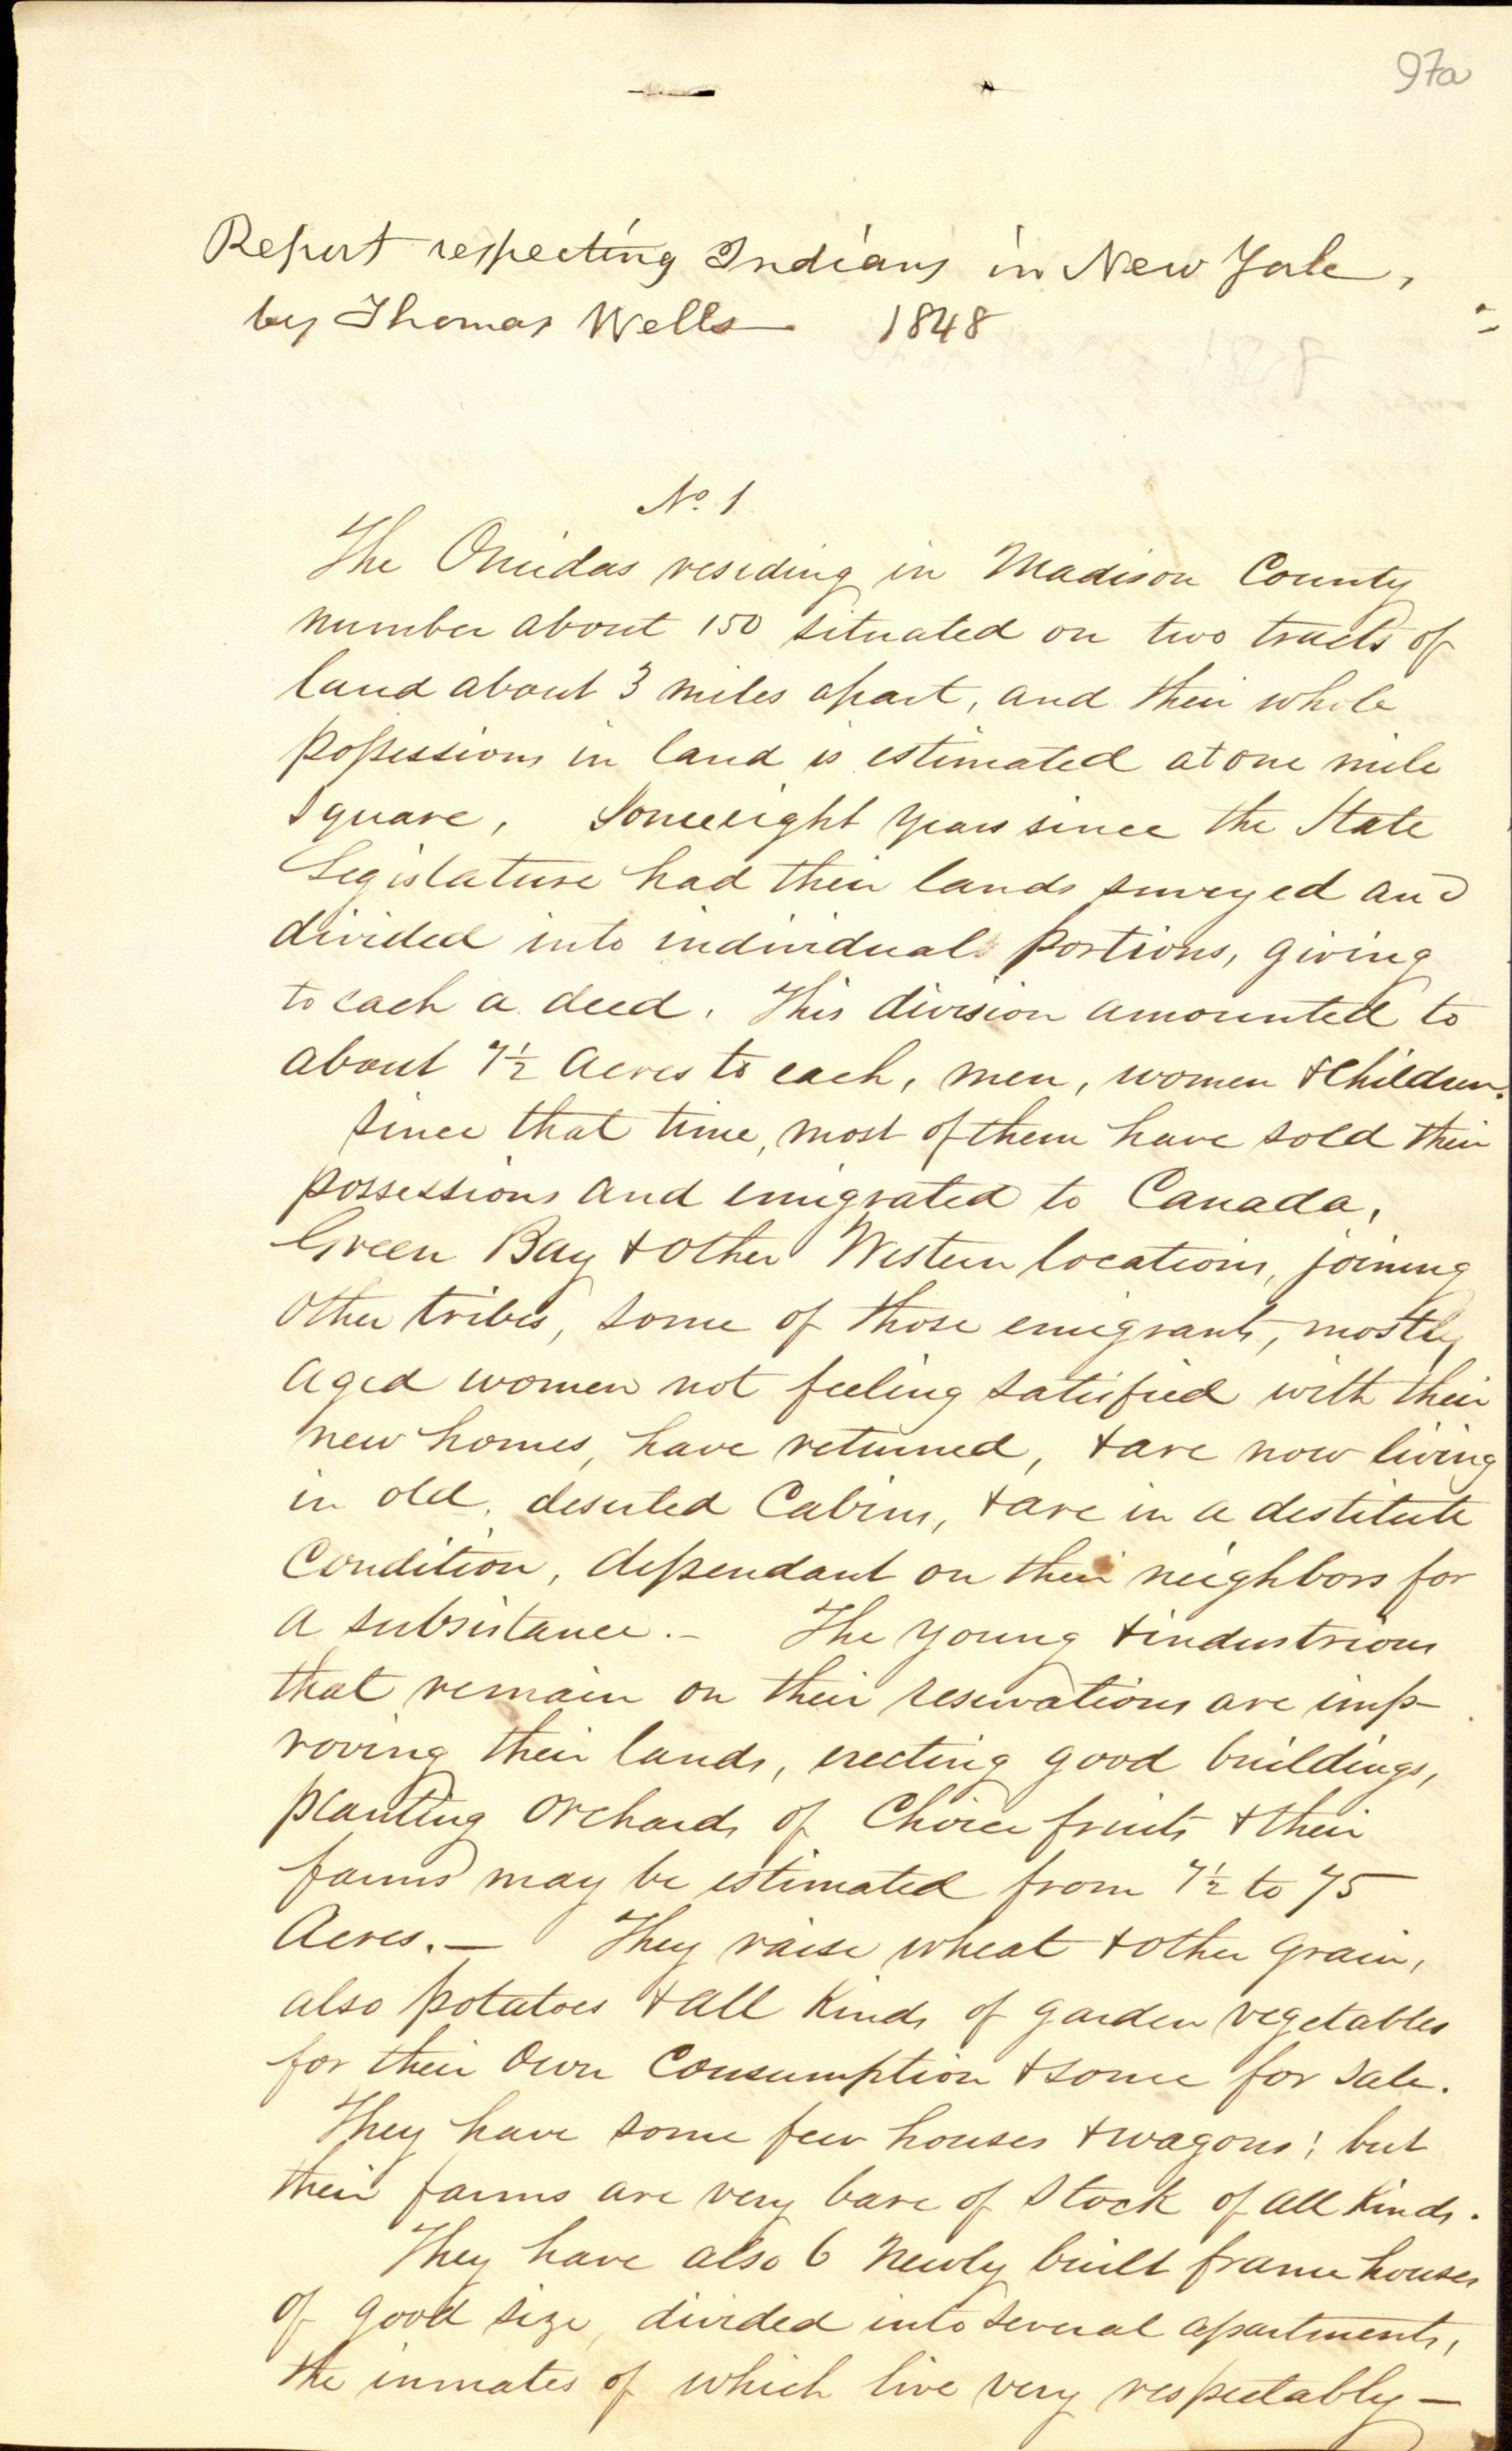 97a
Report respecting Indians in New York,
by Thomas Wells 1848
No. 1
The Oneidas residing in Madison County
number about 150 situated on two tracts of
land about 3 miles apart, and their whole
possessions in land is estimated at one mile
square, Some eight years since the State
Legislature had their lands surveyed and
divided into individual portions, giving
to each a deed. This division amounted to
about 7½ acres to each, men, women & children.
since that time, most of them have sold their
possessions and emigrated to Canada,
Green Bay & other Western locations, joining
other tribes, some of those emigrants, mostly
aged women not feeling satisfied with their
new homes, have returned, & are now living
in old, deserted Cabins, & are in a destitute
Condition, dependant on their neighbors for
a subsistance. — The young & industrious
that remain on their reservations are imp-
roving their lands, erecting good buildings,
planting orchards of Choice fruits & their
farms may be estimated from 7½ to 75
Acres. — They raise wheat & other grain,
also potatoes & all kinds of garden vegetables
for their own Consumption & some for sale.
They have some few houses & wagons; but
their farms are very bare of Stock of all kinds.
They have also 6 newly built frame houses
of good size, divided into several apartments,
the inmates of which live very respectably —